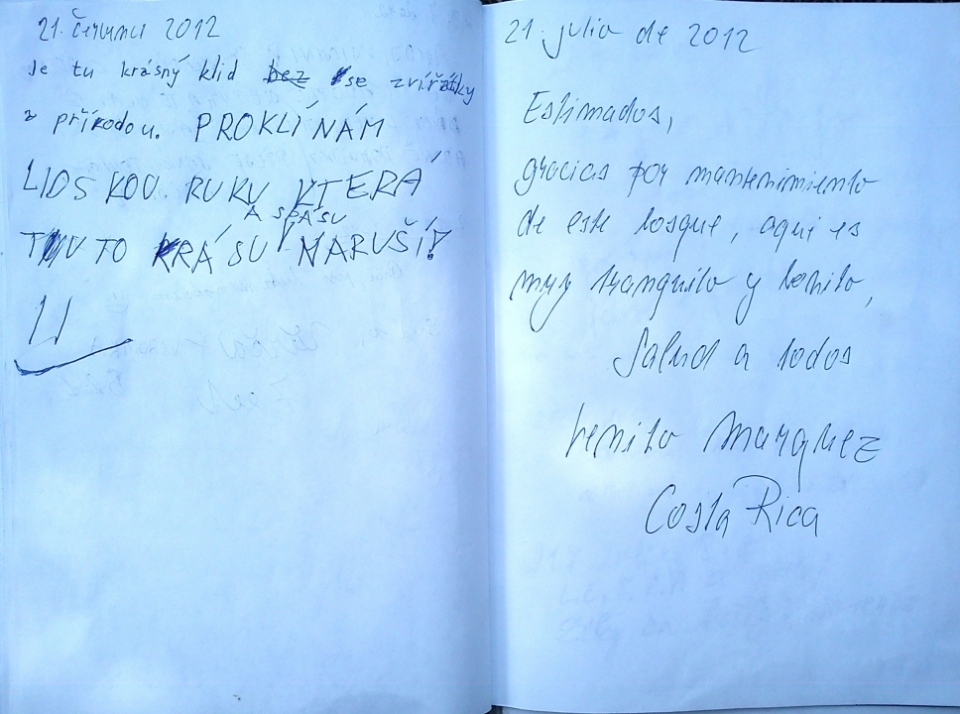 21. červenci 2012
Je tu krásný klid bez se zvířátky
a přírodou. PROKLÍNÁM
LIDSKOU RUKU KTERÁ
A SPÁSU
TUTO KRÁSU NARUŠÍ!
21. julio de 2012
Estimados,
gracias por mantenimiento
de este bosque, aqui es
muy tranquilo y bonito,
Salud a todos
Benito Marquez
Costa Rica